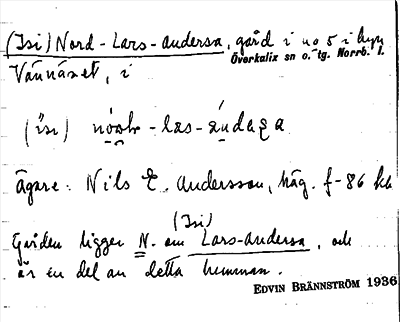 (Isi) Nord-Lars-Andersa, gård i no 5 i byn
Överkalix sn o. tg. Norrb. l.
Vännäset, i
Ägare: Nils E. Andersson, häg. f-86 
(Isi)
Gården ligger N. om Lars-Andersa, och
är en del av detta hemman.
EDVIN BRÄNNSTRÖM 1936